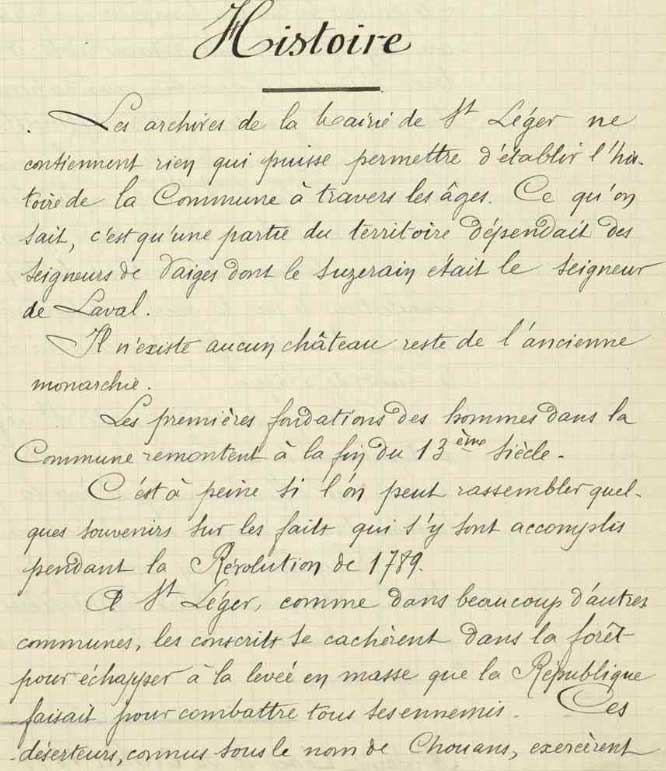 Histoire
Les archives de la Mairie de St Léger ne
contiennent rien qui puisse permettre d'établir l'his-
toire de la Commune à travers les âges. Ce qu'on
sait, c'est qu'une partie du territoire dépendait des
seigneurs de Vaiges dont le suzerain était le seigneur
de Laval.
Il n'existe aucun château reste de l'ancienne
monarchie.
Les premières fondations des hommes dans la
Commune remontent à la fin du 13ème siècle.
C'est à peine si l'on peut rassembler quel-
ques souvenirs sur les faits qui s'y sont accomplis
pendant la Révolution de 1789.
A St Léger, comme dans beaucoup d'autres
communes, les conscrits se cachèrent dans la forêt
pour échapper à la levée en masse que la République
faisait pour combattre tous ses ennemis. Ces
déserteurs, connus sous le nom de Chouans, exercèrent